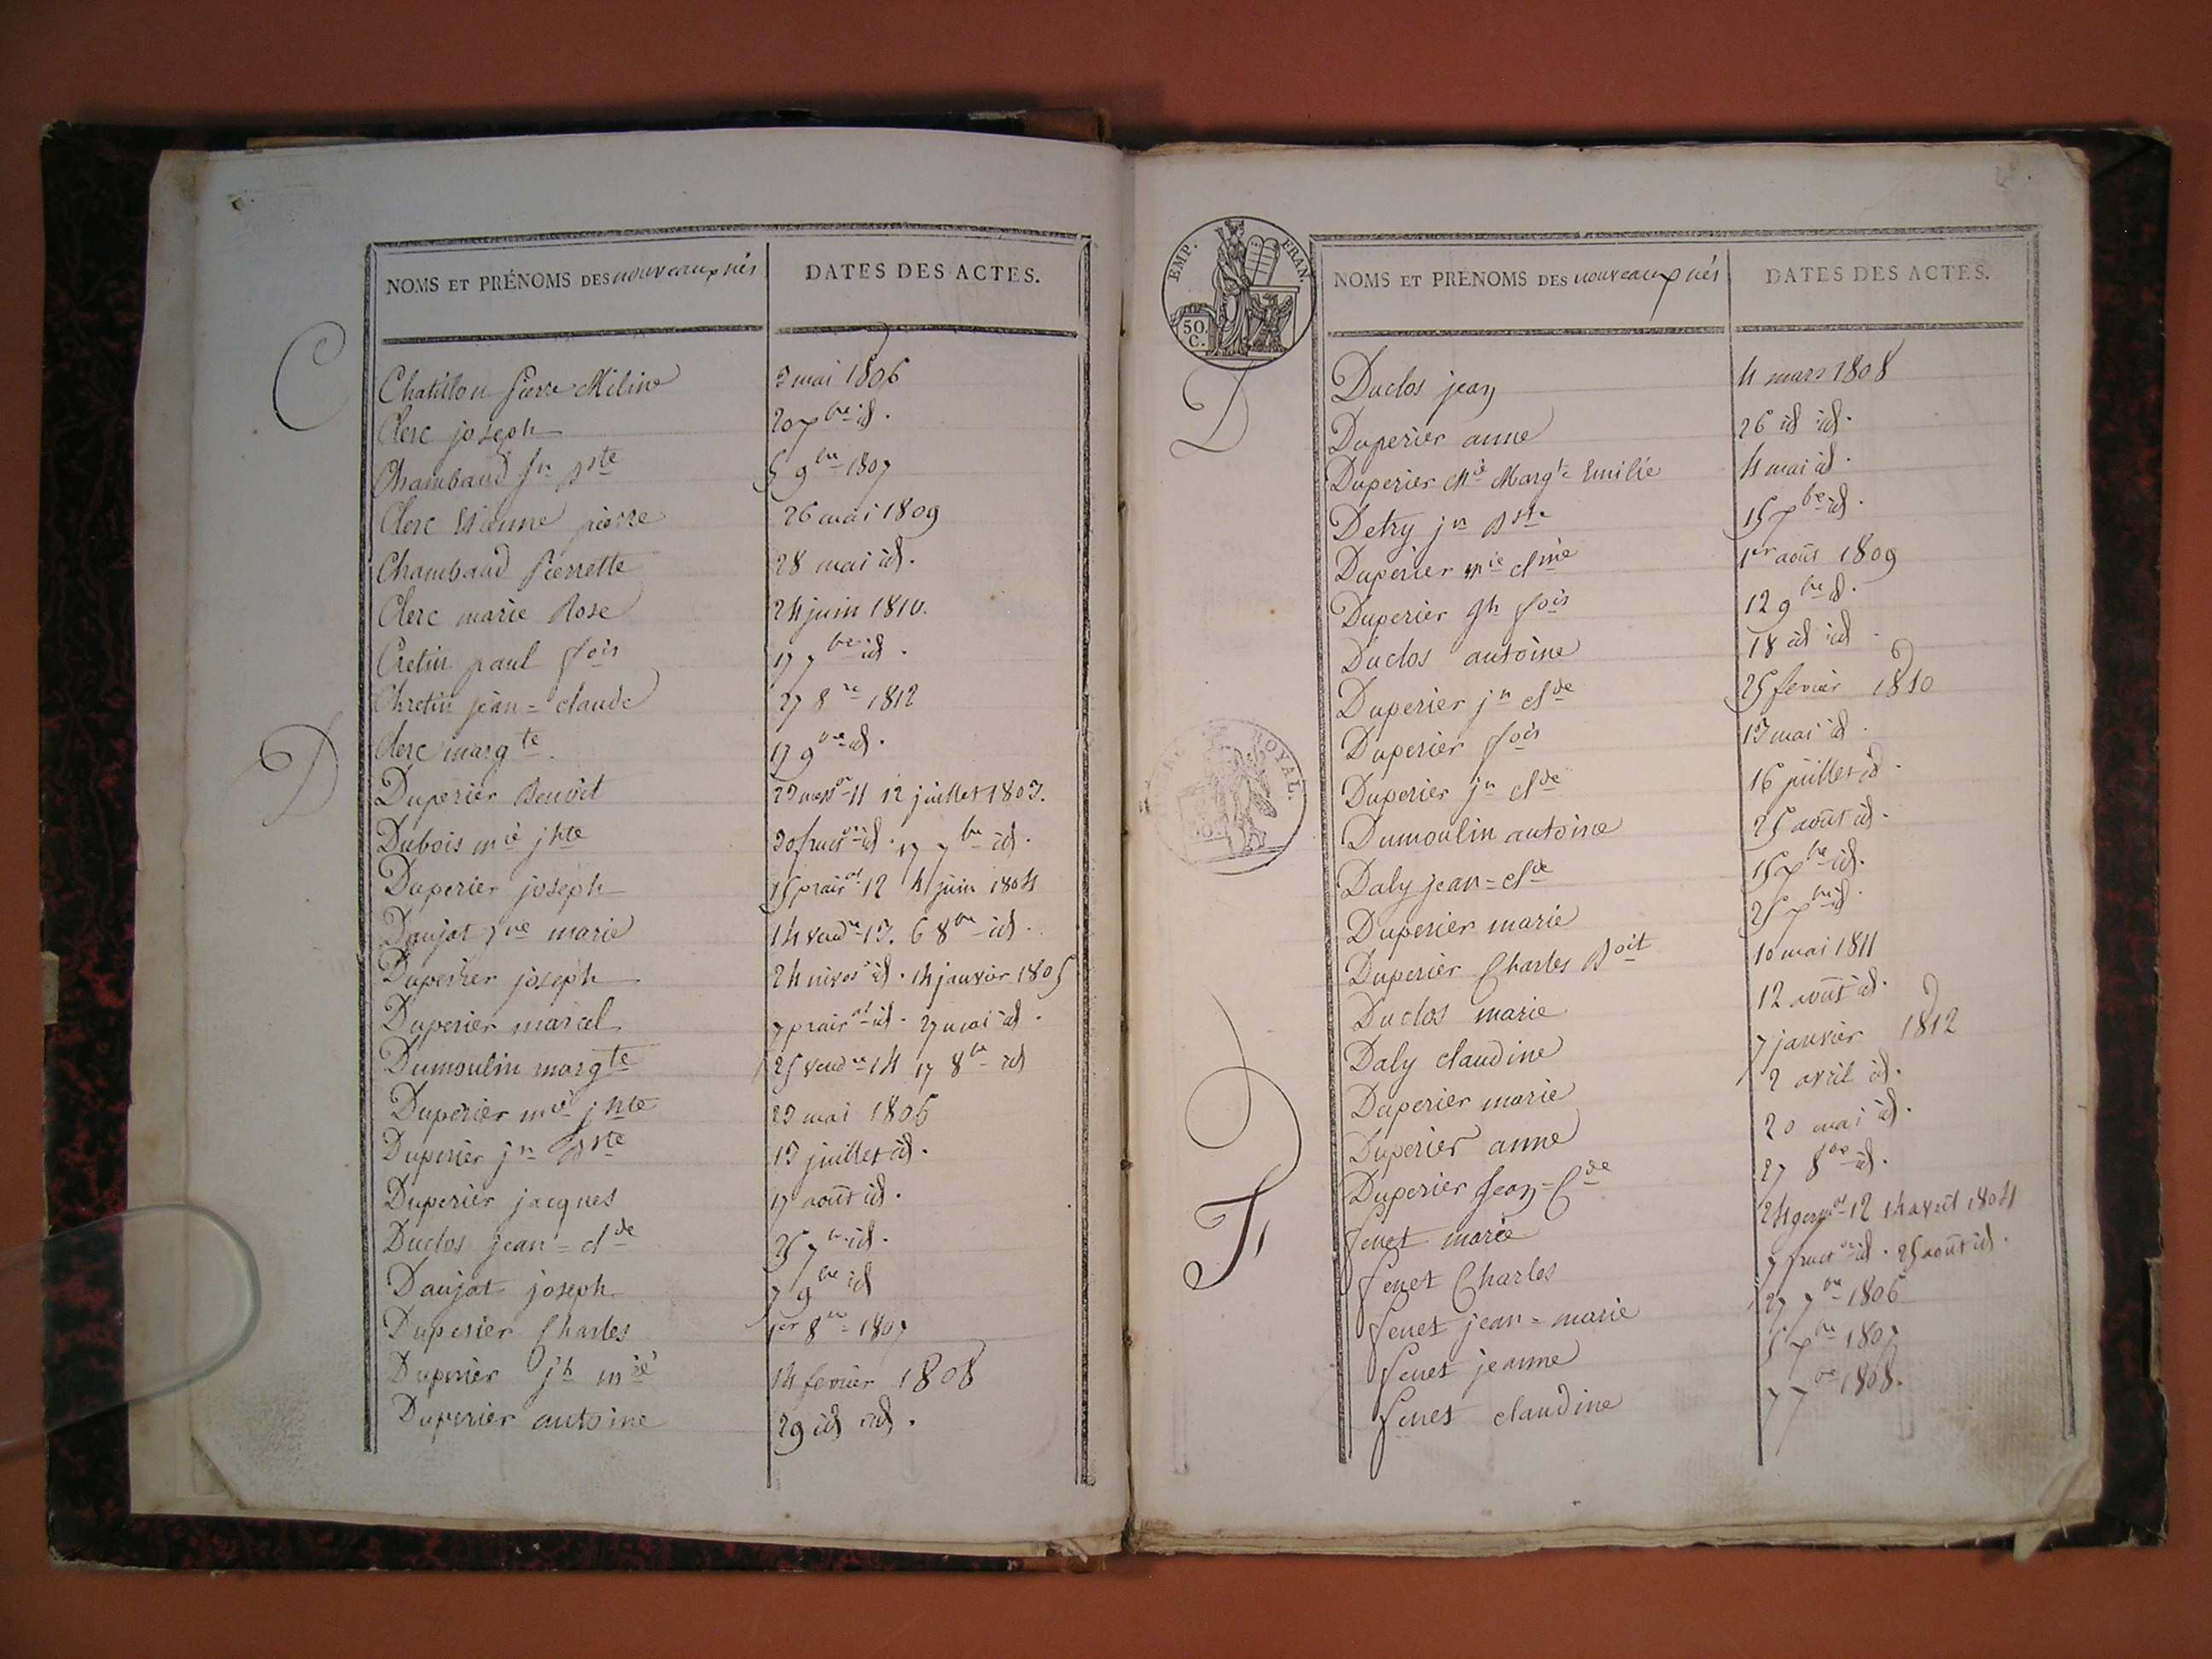 NOMS ET PRÉNOMS DES nouveaux nés
DATES DES ACTES.
C
Chatillon pierre Méline 3 mai 1806
Clerc joseph 20 Xbre id.
Chambaud jn Bste 5 9bre 1807
Clerc Etienne pierre 26 mai 1809
Chambaud pierrette 28 mai id.
Clerc marie Rose 24 juin 1810.
Cretin paul fois 17 7bre id.
Chretin jean=claude 27 8re 1812
Clerc margte. 17 9bre id.
D
Duperier Benoit 23 messor 11 12 juillet 1803.
Dubois mie jhte 30 fructor id. 17 7bre id.
Duperier joseph 15 prairal 12 4 juin 1804
Daujat jne marie 14 vendre 13. 6 8bre id.
Duperier joseph 24 nivose id. 14 janvier 1805
Duperier marcel 7 prairal id. 27 mai id.
Dumoulin margte 25 vendre 14 17 8bre id
Duperier mie jhte 23 mai 1806
Duperier jn Bste 13 juillet id.
Duperier jacques 17 août id.
Duclos jean=clde 25 7bre id.
Daujat joseph 7 9bre id
Duperier Charles 1er 8re 1807
Duperier jh mie 14 fevrier 1808
Duperier antoine 29 id id.
EMP. FRAN.
50. C.
NOMS ET PRÉNOMS DES nouveaux nés
DATES DES ACTES.
D
Duclos jean 4 mars 1808
Duperier anne 26 id id.
Duperier Mie Margte Emilie 4 mai id.
Detry jn Bste 15 Xbre id.
Duperier mie clme 1er août 1809
Duperier jh fois 12 9bre id.
Duclos antoine 18 id id.
Duperier jn clde 25 fevrier 1810
Duperier fois 13 mai id.
ROYAL.
Duperier jn clde 16 juillet id.
Dumoulin antoine 25 août id.
Daly jean=clde 15 Xbre id.
Duperier marie 25 Xbre id.
Duperier Charles Boit 10 mai 1811
Duclos marie 12 août id.
Daly claudine 7 janvier 1812
Duperier marie 2 avril id.
Duperier anne 20 mai id.
Duperier Jean=Cde 27 8bre id.
F
fenet marie 24 germal 12 14 avril 1804
fenet Charles 7 fructor id. 25 août id.
fenet jean=marie 27 7bre 1806
fenet jeanne 5 Xbre 1807
fenet claudine 7 7bre 1808.